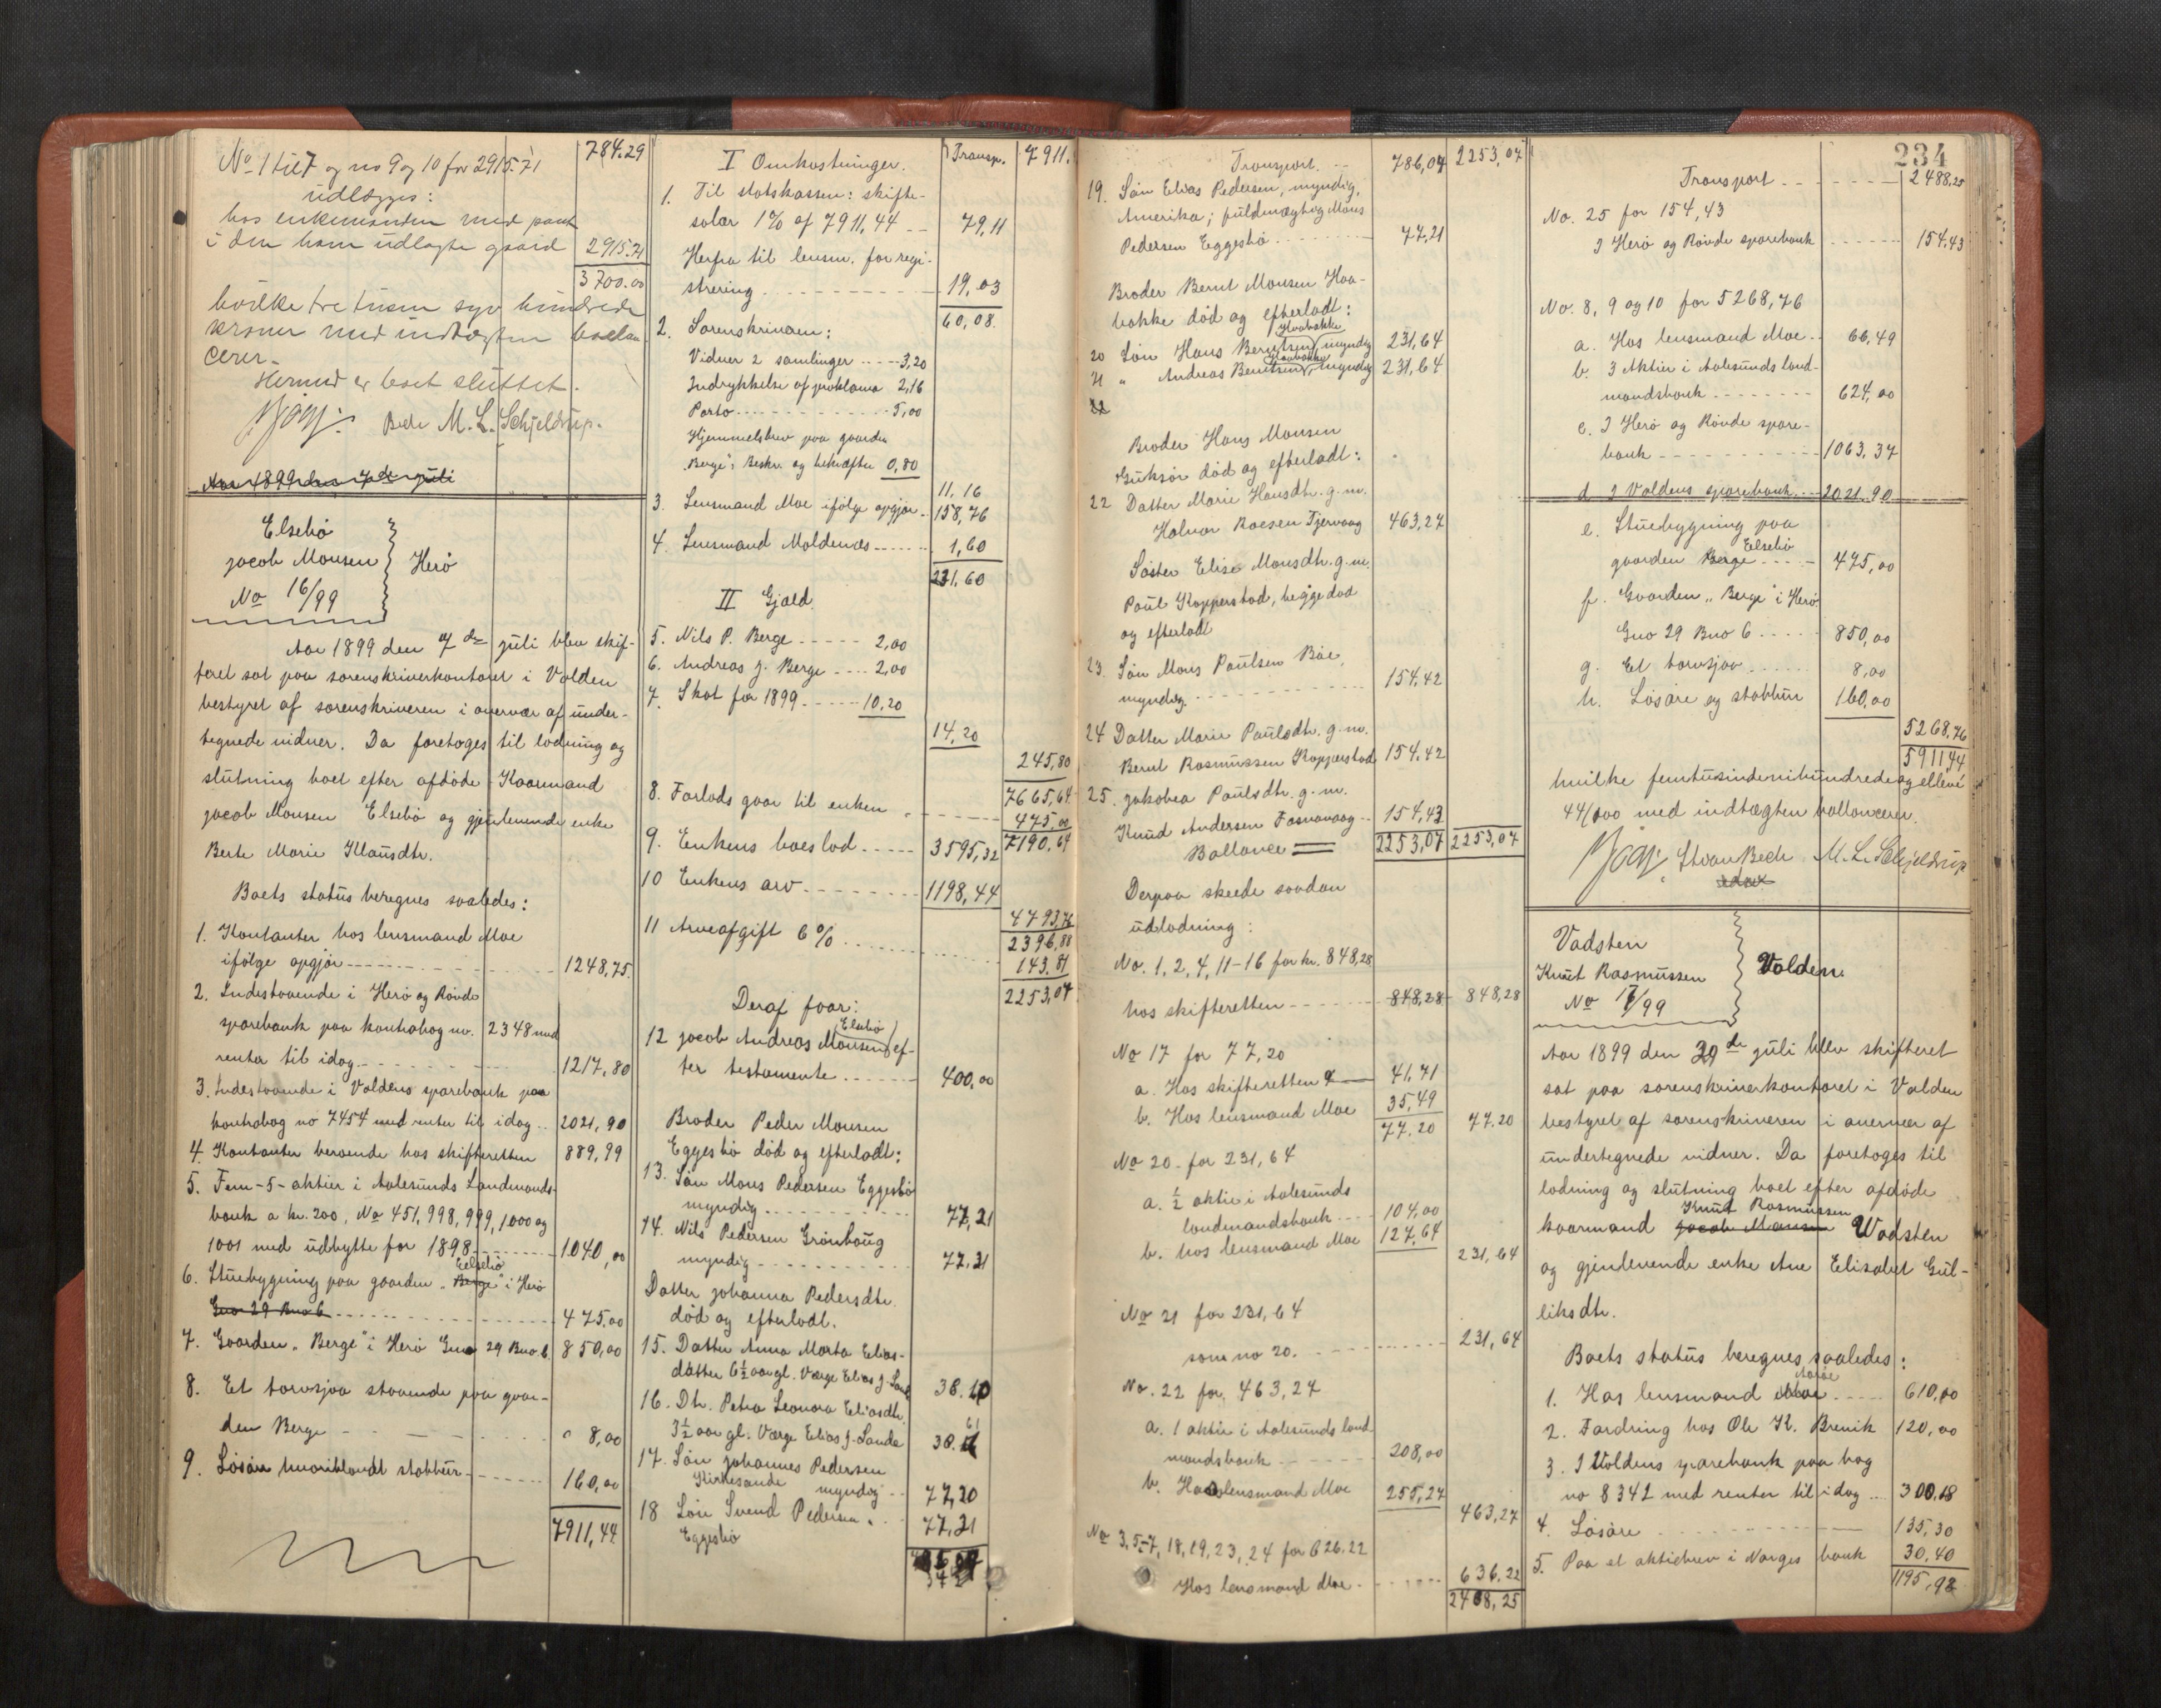 No 1 til 7 og no 9 og 10 for 2915.71 784.29
udlægges:
hos enkemanden med pant
i den ham udlagte gaard 2915.71
3700.00
hvilke tretusen syv hundrede
kroner med indtægten ballan-
cerer.
Hermed er boet sluttet.
Bech M. L. Schjeldrup.
Aar 1899 den 7de juli
Elsebø
Jacob Monsen Herø
No 16/99
Aar 1899 den 7de juli blev skif-
teret sat paa sorenskriverkontoret i Volden
bestyret af sorenskriveren i overvær af under-
tegnede vidner. Da foretoges til lodning og
slutning boet efter afdøde Kaarmand
Jacob Monsen Elsebø og gjenlevende enke
Berte Marie Klausdtr.
Boets status beregnes saaledes:
1. Kontanter hos lensmand Moe
ifølge opgjør 1248,75.
2. Indestaaende i Herø og Røvde
sparebank paa kontrabog nr. 2348 med
renter til idag 1217,80
3. Indestaaende i Voldens sparebank paa
kontrabog no 7454 med renter til idag 2021,90
4. Kontanter beroende hos skifteretten 889,99
5. Fem -5- aktier i Aalesunds Landmands-
bank a kr. 200, No 451, 998, 999, 1000 og
1001 med udbytte for 1898 1040,00
Eelsebø
6. Stuebygning paa gaarden "Berge" i Herø
Gno 29 Bno 6 475.00
7. Gaarden "Berge" i Herø Gno 29 Bno 6 850,00
8. Et torvsjaa staaende paa gaar-
den Berge 8,00
9. Løsøre hvoriblandt stabbur 160,00
7911,44
I Omkostninger. Transp. 7911.
1. Til statskassen: skifte-
salær 1% af 7911,44 79,11
Herfra til lensm. for regi-
strering 19,03
60,08.
2. Sorenskriveren:
Vidner 2 samlinger 3,20
Indrykkelse af proklama 2,16
Porto 5,00
Hjemmelsbrev paa gaarden
"Berge": Beskr. og bekræftn 0,80
11,16
3. Lensmand Moe ifølge opgjør 158,76
4. Lensmand Moldenæs 1,60
231,60
II Gjæld.
5. Nils P. Berge 2,00
6. Andreas J. Berge 2,00
7. Skat for 1899 10,20
14,20
245,80
7665,64
8. Forlods gaar til enken 475,00
7190,64
9. Enkens boeslod 3595,32
10 Enkens arv 1198,44
4793,76
2396,88
11 Arveafgift 6% 143,81
2253,07
Deraf faar:
Elsebø
12 Jacob Andreas Monsen ef-
ter testamente 400,00
Broder Peder Monsen
Eggesbø død og efterladt:
13. Søn Mons Pedersen Eggesbø
myndig 77,21
14. Nils Pedersen Grønhaug
myndig 77,21
Datter Johanna Pedersdtr.
død og efterladt.
15. Datter Anna Marta Elias-
datter 6½ aar gl. Værge Elias J. Sande 38.10
16. Dtr. Petra Leonora Eliasdtr.
3½ aar gl. Værge Elias J. Sande 38.61
17. Søn Johannes Pedersen
Kirkesande myndig 77,20
18 Søn Svend Pedersen 77,21
Eggesbø
234
Transport. 786,04 2253,07
19. Søn Elias Pedersen, myndig,
Amerika; fuldmægtig Mons
Pedersen Eggesbø 77,21
Broder Bernt Monsen Haa-
bakke død og efterladt:
Haabakke
20 Søn Hans Berntsen, myndig 231,64
Haabakke
21 " Andreas Berntsen, myndig 231,64
22
Broder Hans Monsen
Gurskø død og efterladt:
22 Datter Marie Hansdtr. g. m.
Halvor Roesen Tjervaag 463,27
Søster Elise Monsdtr. g. m.
Paul Kopperstad, begge død
og efterladt
23. Søn Mons Paulsen Bøe,
myndig. 154,42
24 Datter Marie Paulsdtr. g. m.
Bernt Rasmussen Kopperstad 154,42
25. Jakobea Paulsdtr. g. m.
Knud Andersen Fosnavaag 154,43
Ballance 2253,07 2253,07
Derpaa skeede saadan
udlodning:
No. 1, 2, 4, 11-16 for kr. 848,28
hos skifteretten 848,28 848,28
No 17 for 77,20
a. Hos skifteretten 41,71
b. Hos lensmand Moe 35,49
77.20 77.20
No 20 for 231,64
a. ½ aktie i Aalesunds
landmandsbank 104,00
b. hos lensmand Moe 127,64
231,64
No 21 for 231,64
som no 20. 231,64
No. 22 for 463,27
a. 1 aktie i Aalesunds land-
mandsbank 208,00
b. Hos lensmand Moe 255,27
463,27
No 3, 5-7, 18, 19, 23, 24 for 626.22
Hos lensmand Moe 636,22
2488,25
Transport 2488,25
No. 25 for 154,43
I Herø og Røvde sparebank 154,43
No. 8, 9 og 10 for 5268,76
a. Hos lensmand Moe 66,49
b. 3 Aktier i Aalesunds land-
mandsbank 624,00
c. I Herø og Røvde spare-
bank 1063,37
d I Voldens sparebank 2021,90
e. Stuebygning paa
Eelsebø
gaarden Berge 475,00
f. Gaarden "Berge" i Herø
Gno 29 Bno 6 850,00
g. Et torvsjaa 8,00
h. Løsøre og stabbur 160,00
5268,76
5911,44
hvilke femtusindenihundredeogelleve
44/100 med indtægten ballancerer.
Bech M. L. Schjeldrup
Vadsten
Knut Rasmussen Volden.
No 17/99
Aar 1899 den 29de juli blev skifteret
sat paa sorenskriverkontoret i Volden
bestyret af sorenskriveren i overvær af
undertegnede vidner. Da foretoges til
lodning og slutning boet efter afdøde
Knut Rasmussen
kaarmand Jacob Monsen Vadsten
og gjenlevende enke Ane Elisabet Gul-
liksdtr.
Boets status beregnes saaledes:
Aarøe
1. Hos lensmand Moe 610,00
2. Fordring hos Ole K. Brenik 120,00
3. I Voldens sparebank paa bog
no 8342 med renter til idag 300,18
4. Løsøre 135,30
5. Paa et aktiebrev i Norges bank 30,40
1195,98